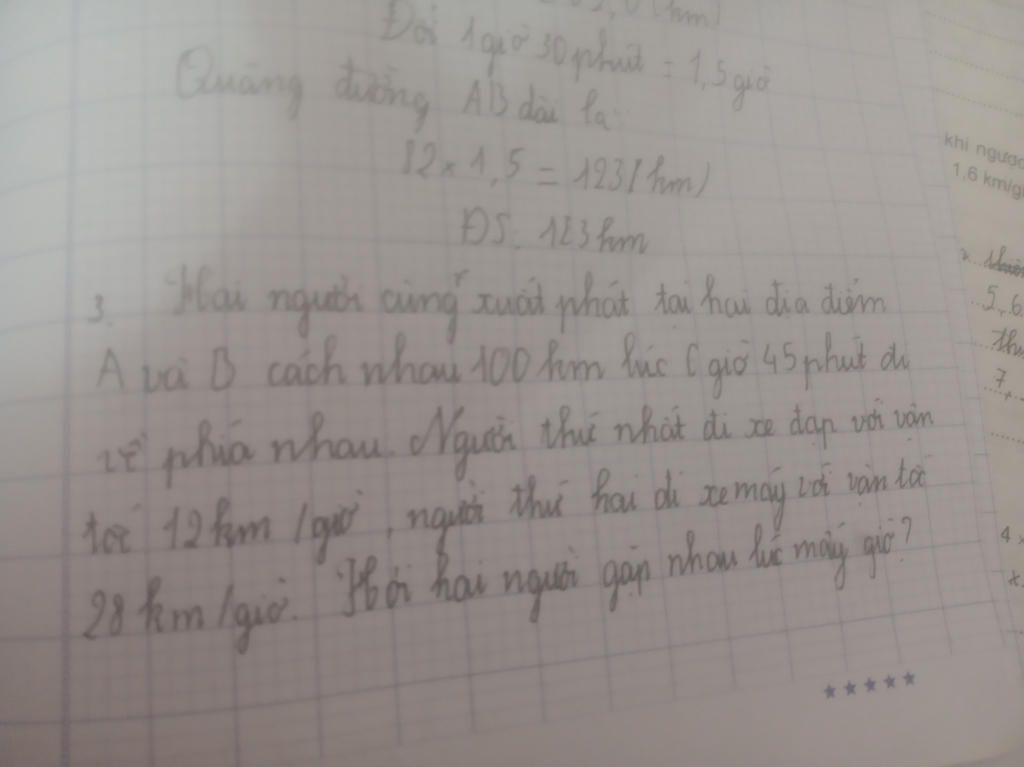 (km)
Đổi 1 giờ 30 phút = 1,5 giờ
Quãng đường AB dài là:
82 x 1,5 = 123 (km)
ĐS: 123 km
3. Hai người cùng xuất phát tại hai địa điểm
A và B cách nhau 100 km lúc 6 giờ 45 phút đi
về phía nhau. Người thứ nhất đi xe đạp với vận
tốc 12 km/giờ, người thứ hai đi xe máy với vận tốc
28 km/giờ. Hỏi hai người gặp nhau lúc mấy giờ?
khi ngược
1,6 km/gi
5,6
7,
4 x
x